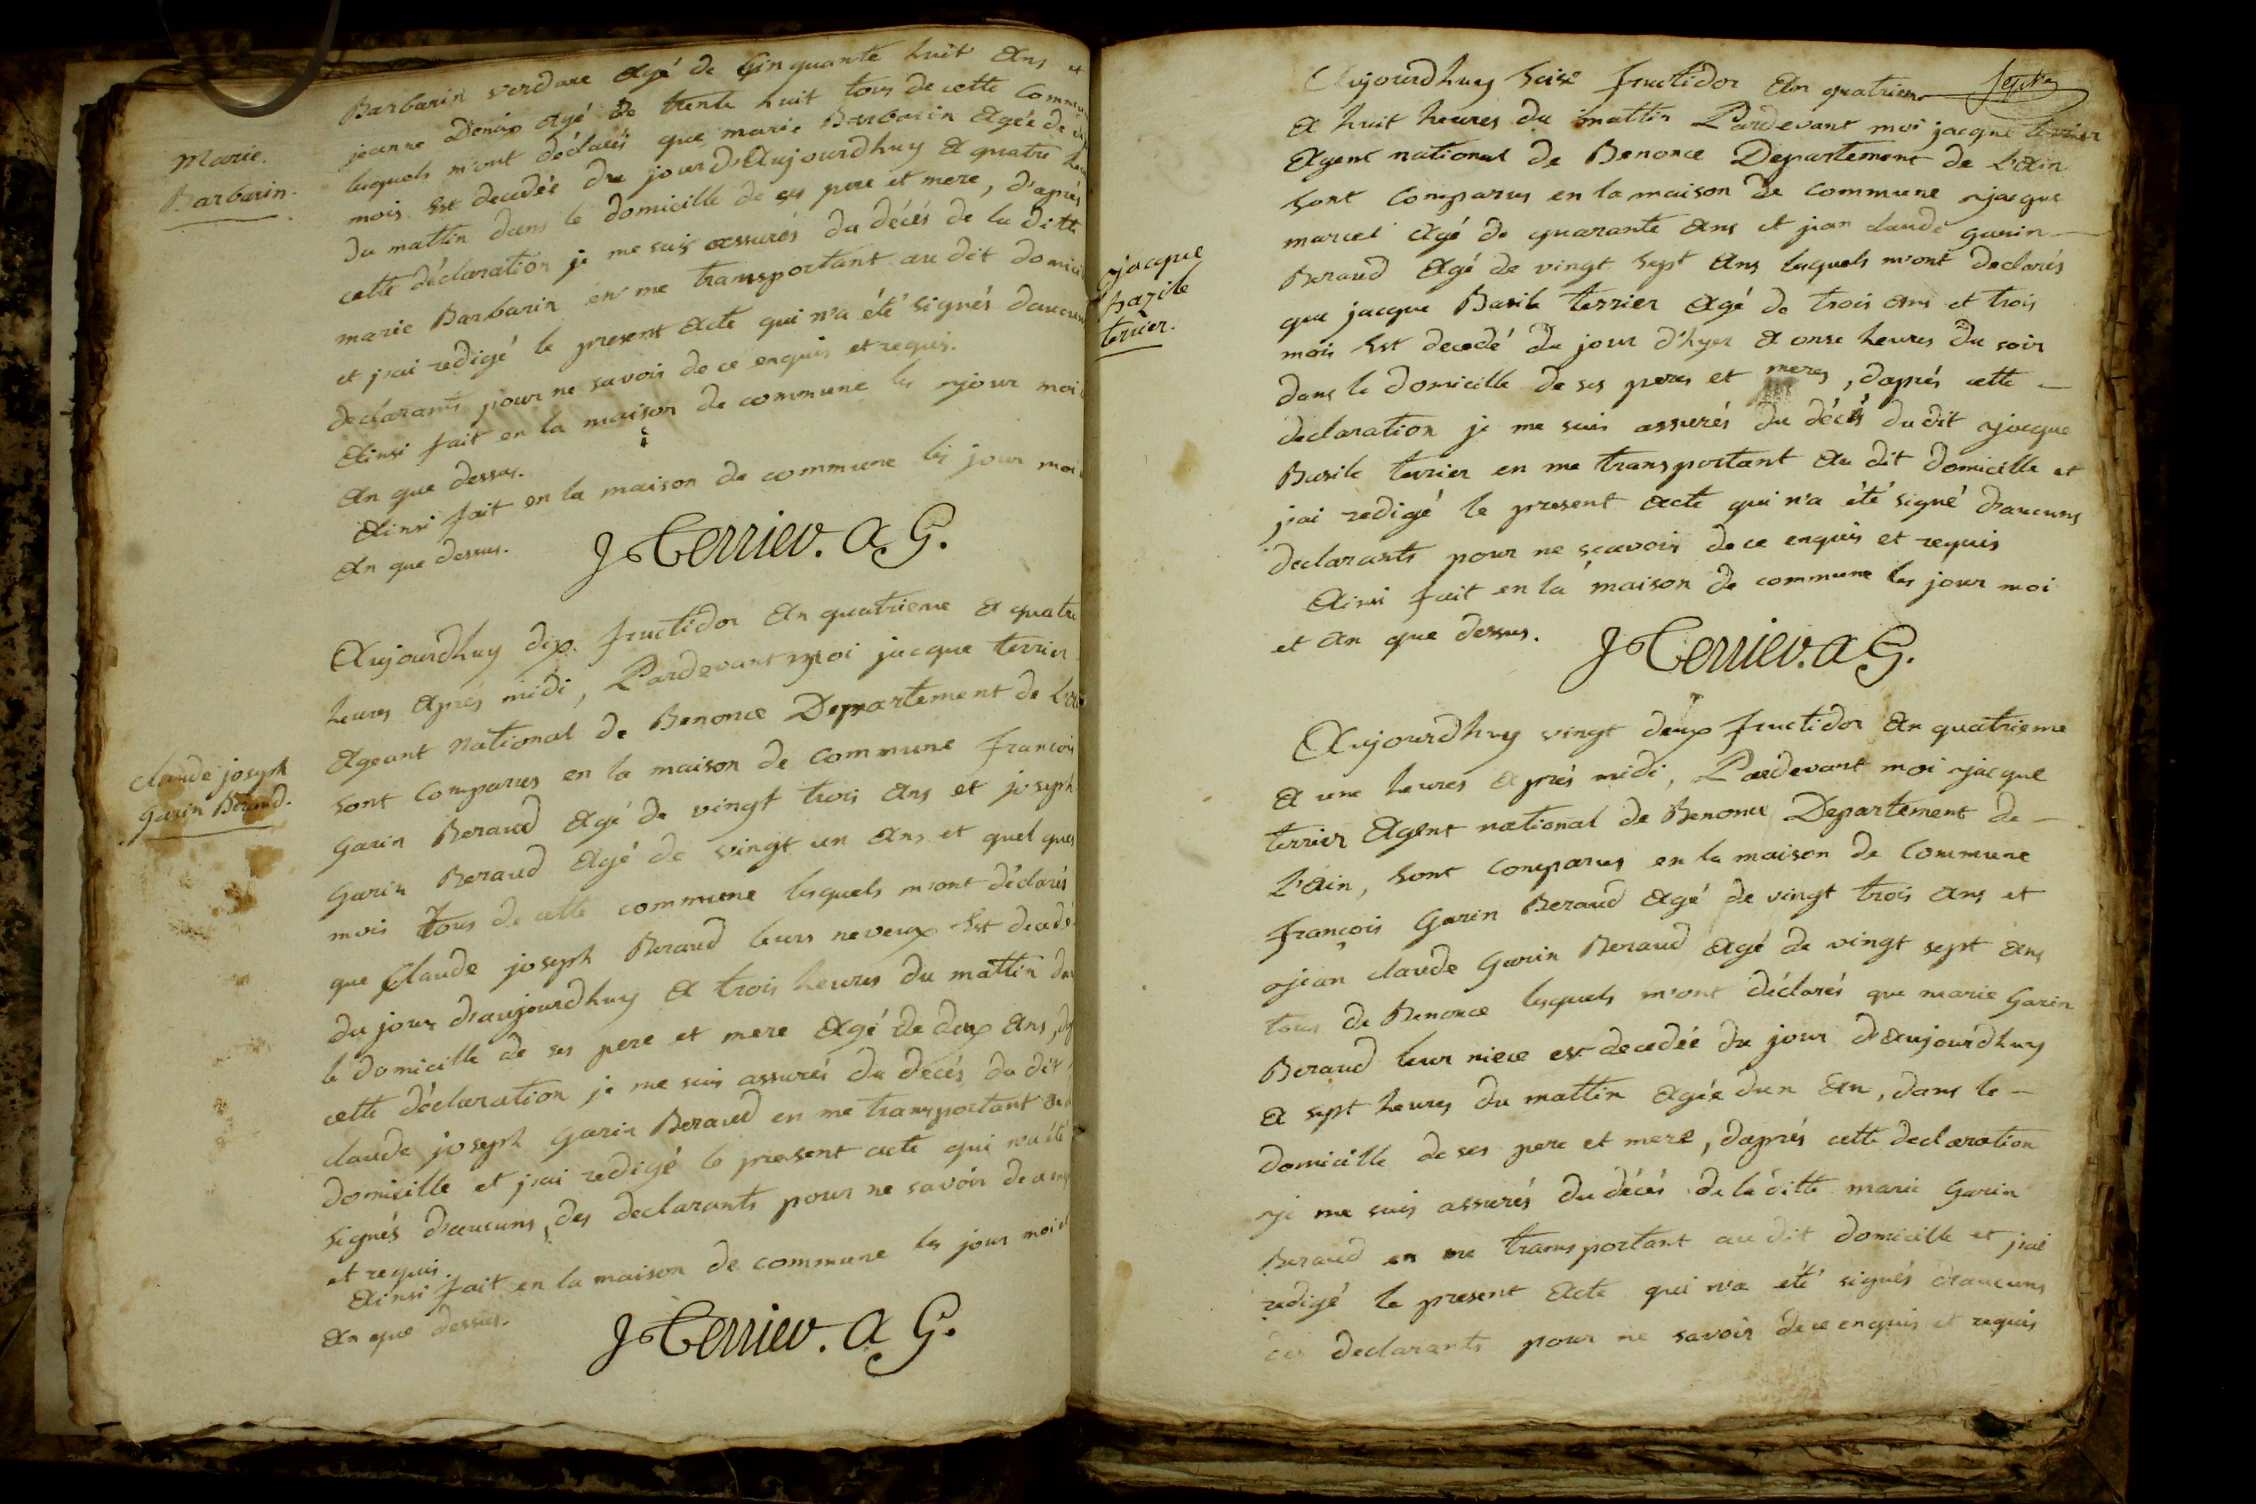 Barbarin verdare Agé de Cinquante huit Ans et
jeanne Agé de trente huit tous de cette Commu
lesquels m'ont déclarés que marie Barbarin Agée de
mois Est decedée du jour d'Aujourdhuy A quatre heu
du mattin dans le domicille de ses pere et mere, d'aprés
cette déclaration je me suis assurés du décés de la ditte
marie Barbarin en me transportant au dit domici
et j'rai redigé le present Acte qui n'a été signés daucun
declarants pour ne savoir de ce enquis et requis.
Ainsi fait en la maison de commune les jour moi
An que dessus.
Ainsi fait en la maison de commune les jour moi
An que dessus.
J Terrier. A G.
Marie.
Barbarin.
Aujourdhuy dix fructidor An quatrieme A quatre
heures Aprés midi, Pardevant moi jacque terrier
Ageant National de Benonce Departement de L'ai
sont Comparus en la maison de Commune françois
Garin Beraud Agé de vingt trois Ans et joseph
Garin Beraud Agé de vingt un Ans et quelques
mois tous de cette commune lesquels m'ont déclarés
que Claude joseph Beraud leurs neveux Est decedé
du jour d'aujourdhuy A trois heures du mattin da
le domicille de ses pere et mere Agé de deux Ans,
cette déclaration je me suis assurés du décés du dit
claude joseph Garin Beraud en me transportant au
domicille et j'rai redigé le present acte qui n'a été
signés d'aucuns des declarants pour ne savoir de
et requis.
Ainsi fait en la maison de commune les jour moi et
An que dessus.
J Terrier. A G.
Claude joseph
Garin Beraud.
Aujourdhuy Seise fructidor An quatrieme
A huit heures du mattin Pardevant moi jacque terrier
Agent national de Benonce Departement de L'Ain
Sont Comparus en la maison de Commune jacque
marcel Agé de quarante Ans et jean claude Garin
Beraud Agé de vingt Sept Ans lesquels m'ont declarés
que jacque Basile terrier Agé de trois Ans et trois
mois Est decedé du jour d'hyer A onse heures du soir
dans le domicille de ses peres et meres, daprés cette
declaration je me suis assurés du décés du dit jacque
Basile terrier en me transportant Au dit domicille et
j'ai redigé le present Acte qui n'a été signé d'aucuns
declarants pour ne sçavoir de ce enquis et requis
Ainsi fait en la maison de commune les jour moi
et An que dessus.
J Terrier. A G.
jacque
Bazile
terrier.
Aujourdhuy vingt deux fructidor An quatrieme
A une heures Aprés midi, Pardevant moi jacque
terrier Agent national de Benonce Departement de
L'Ain, Sont Comparus en la maison de Commune
françois Garin Beraud Agé de vingt trois Ans et
jean claude Garin Beraud Agé de vingt sept Ans
tous de Benonce lesquels m'ont déclarés que marie Garin
Beraud leur niece est decedée du jour d'Aujourdhuy
A sept heures du mattin Agée dun An, dans le
domicille de ses pere et mere, daprés cette declaration
je me suis assurés du décés de la ditte marie Garin
Beraud en me transportant au dit domicille et j'rai
redigé le present Acte qui n'a été signés d'aucuns
des declarants pour ne savoir de ce enquis et requis